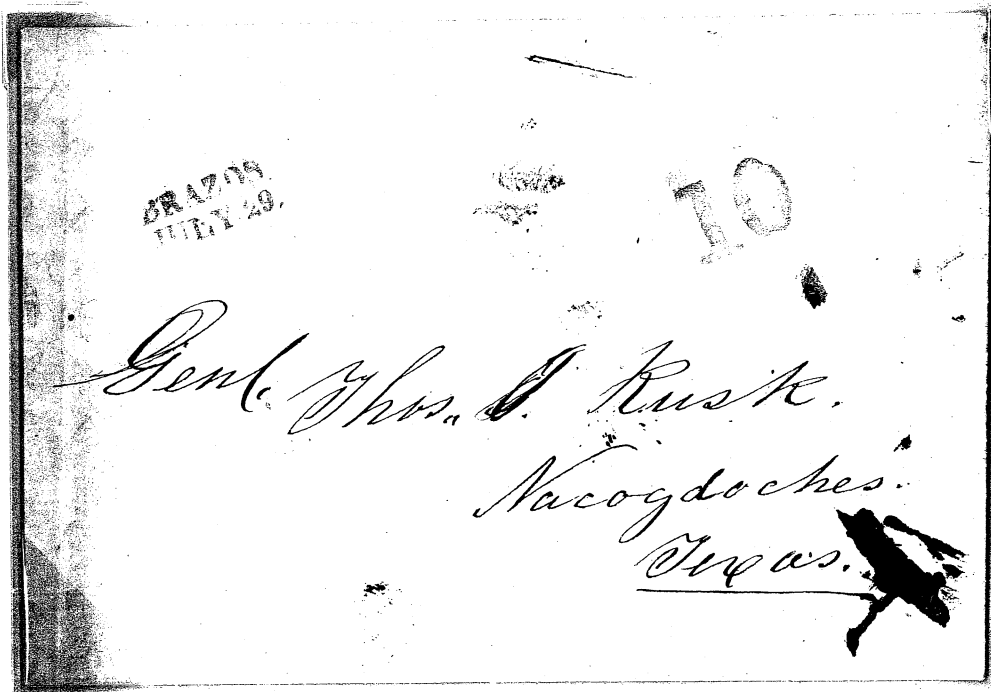 BRAZOS
JULY 29.
10
Genl. Thos. J. Rusk.
Nacogdoches.
Texas.